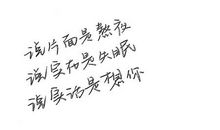 说片面是熬夜
说实在是失眠
说实话是想你